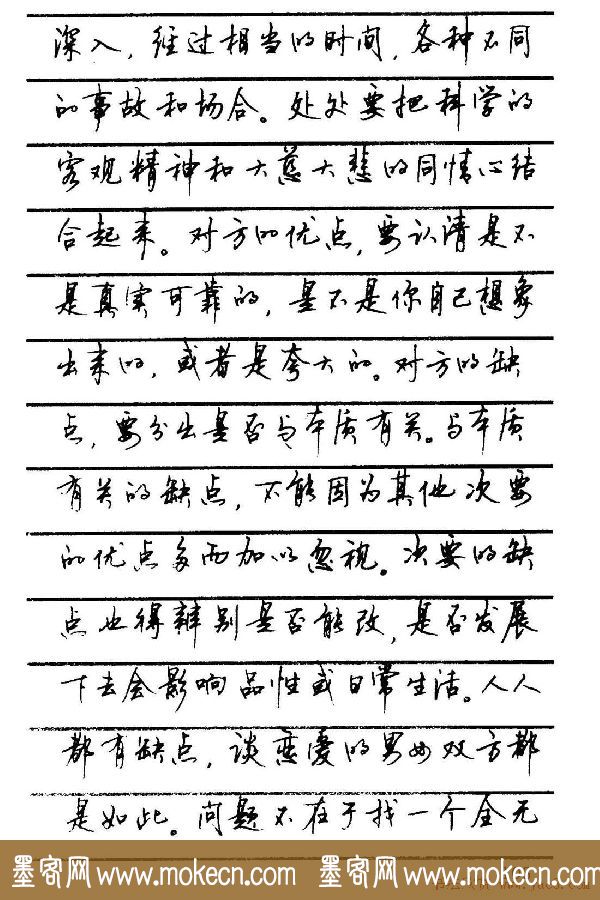 深入，经过相当的时间，各种不同
的事故和场合。处处要把科学的
客观精神和大慈大悲的同情心结
合起来。对方的优点，要认清是不
是真实可靠的，是不是你自己想象
出来的，或者是夸大的。对方的缺
点，要分出是否与本质有关。与本质
有关的缺点，不能因为其他次要
的优点多而加以忽视。次要的缺
点也得辨别是否能改，是否发展
下去会影响品性或日常生活。人人
都有缺点，谈恋爱的男女双方都
是如此。问题不在于找一个全无
墨客网 www.mokecn.com 墨客网 www.mokecn.com